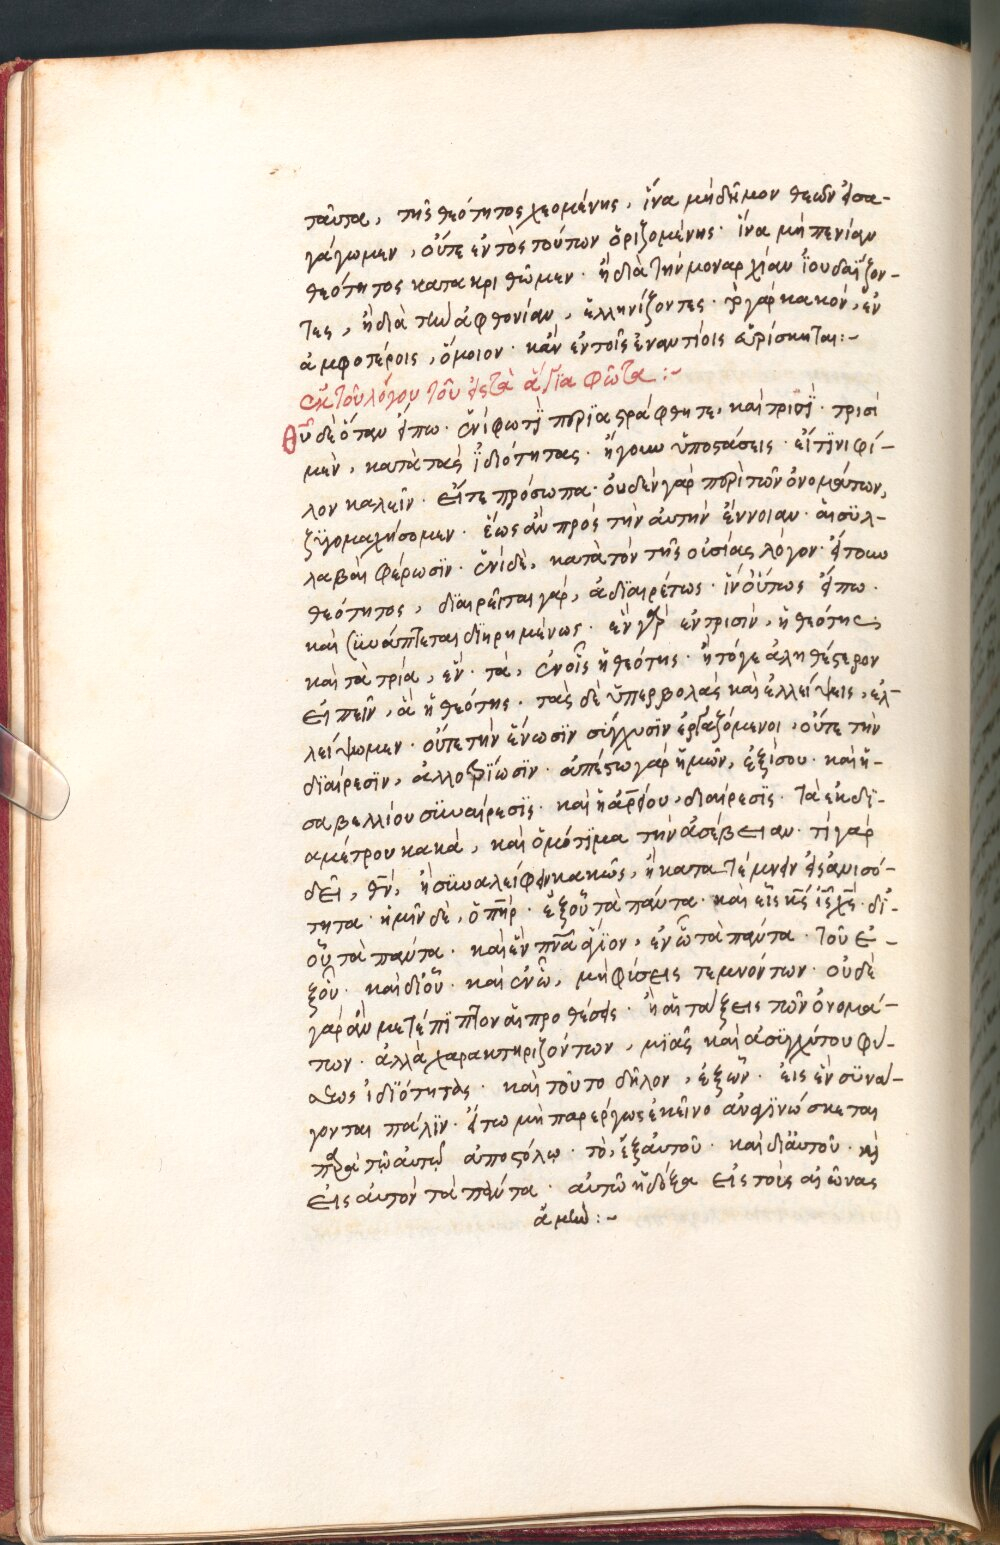 ταῦτα, τῆς θεότητος χεομένης, ἵνα μὴ δῆμον θεῶν εἰσα-
γάγωμεν, οὔτε ἐντὸς τούτων ὁριζομένης· ἵνα μὴ πενίαν
θεότητος κατακριθῶμεν· ἢ διὰ τὴν μοναρχίαν ἰουδαΐζον-
τες, ἢ διὰ τὴν ἀφθονίαν, ἑλληνίζοντες· τὸ γὰρ κακὸν, ἐν
ἀμφοτέροις, ὅμοιον· κἂν ἐν τοῖς ἐναντίοις εὑρίσκηται:-
ἐκ τοῦ λόγου τοῦ εἰς τὰ ἅγια φῶτα:-
θῦ δὲ ὅταν εἴπω· ἑνὶ φωτὶ περιαστράφθητε, καὶ τρισί· τρισὶ
μὲν, κατὰ τὰς ἰδιότητας· ἤγουν ὑποστάσεις· εἴ τινι φί-
λον καλεῖν· εἴτε πρόσωπα· οὐδὲν γὰρ περὶ τῶν ὀνομάτων,
ζυγομαχήσομεν· ἕως ἂν πρὸς τὴν αὐτὴν ἔννοιαν· αἱ συλ-
λαβαὶ φέρωσιν· ἑνὶ δὲ, κατὰ τὸν τῆς οὐσίας λόγον· εἴτουν
θεότητος, διαιρεῖται γὰρ, ἀδιαιρέτως· ἵν' οὕτως εἴπω·
καὶ συνάπτεται διῃρημένως· ἓν γὰρ ἐν τρισὶν, ἡ θεότης,
καὶ τὰ τρία, ἕν· τὰ, ἐν οἷς ἡ θεότης· ἢ τόγε ἀληθέστερον
εἰπεῖν, ἃ ἡ θεότης· τὰς δὲ ὑπερβολὰς καὶ ἐλλείψεις, ἐλ-
λείψωμεν· οὔτε τὴν ἕνωσιν σύγχυσιν ἐργαζόμενοι, οὔτε τὴν
διαίρεσιν, ἀλλοτρίωσιν· ἀπέστω γὰρ ἡμῶν, ἐξίσου· καὶ ἡ-
σαβελλίου συναίρεσις· καὶ ἡ ἀρείου, διαίρεσις· τὰ ἐκ δι-
αμέτρου κακὰ, καὶ ὁμότιμα τὴν ἀσέβειαν· τί γὰρ
δεῖ, θν, ἢ συναλείφειν κακῶς, ἢ κατατέμνειν εἰς ἀνισό-
τητα· ἡμῖν δὲ, ὁ πηρ· ἐξ οὗ τὰ πάντα· καὶ εἷς κς ις χς· δι'-
οὗ τὰ πάντα· καὶ ἓν πνα ἅγιον, ἐν ᾧ τὰ πάντα· τοῦ ἐ-
ξοῦ· καὶ δι' οὗ· καὶ ἐν ᾧ, μὴ φύσεις τεμνόντων· οὐδὲ
γὰρ ἂν μετέπιπτον αἱ προθέσεις· ἢ αἱ τάξεις τῶν ὀνομά-
των· ἀλλὰ χαρακτηριζόντων, μιᾶς καὶ ἀσυγχύτου φύ-
σεως ἰδιότητας· καὶ τοῦτο δῆλον, ἐξ ὧν· εἰς ἓν συνά-
γονται πάλιν· εἴτω μὴ παρέργως ἐκεῖνο ἀναγινώσκεται
παρὰ τῷ αὐτῷ ἀποστόλῳ· τὸ, ἐξ αὐτοῦ· καὶ δι' αὐτοῦ· καὶ
εἰς αὐτὸν τὰ πάντα· αὐτῷ ἡ δόξα εἰς τοὺς αἰῶνας
ἀμήν:-